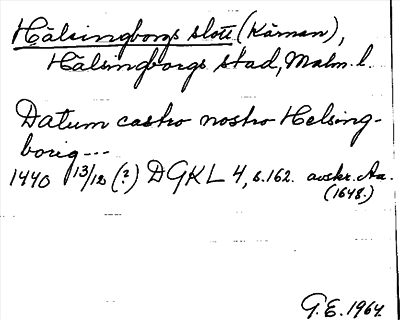 Hälsingborgs slott (Kärnan),
Hälsingborgs stad, Malm. l.
Datum castro nostro Helsing-
borig---
1440 13/12 (?) DGKL 4, s.162. avskr. Aa.
(1648.)
G.E. 1964